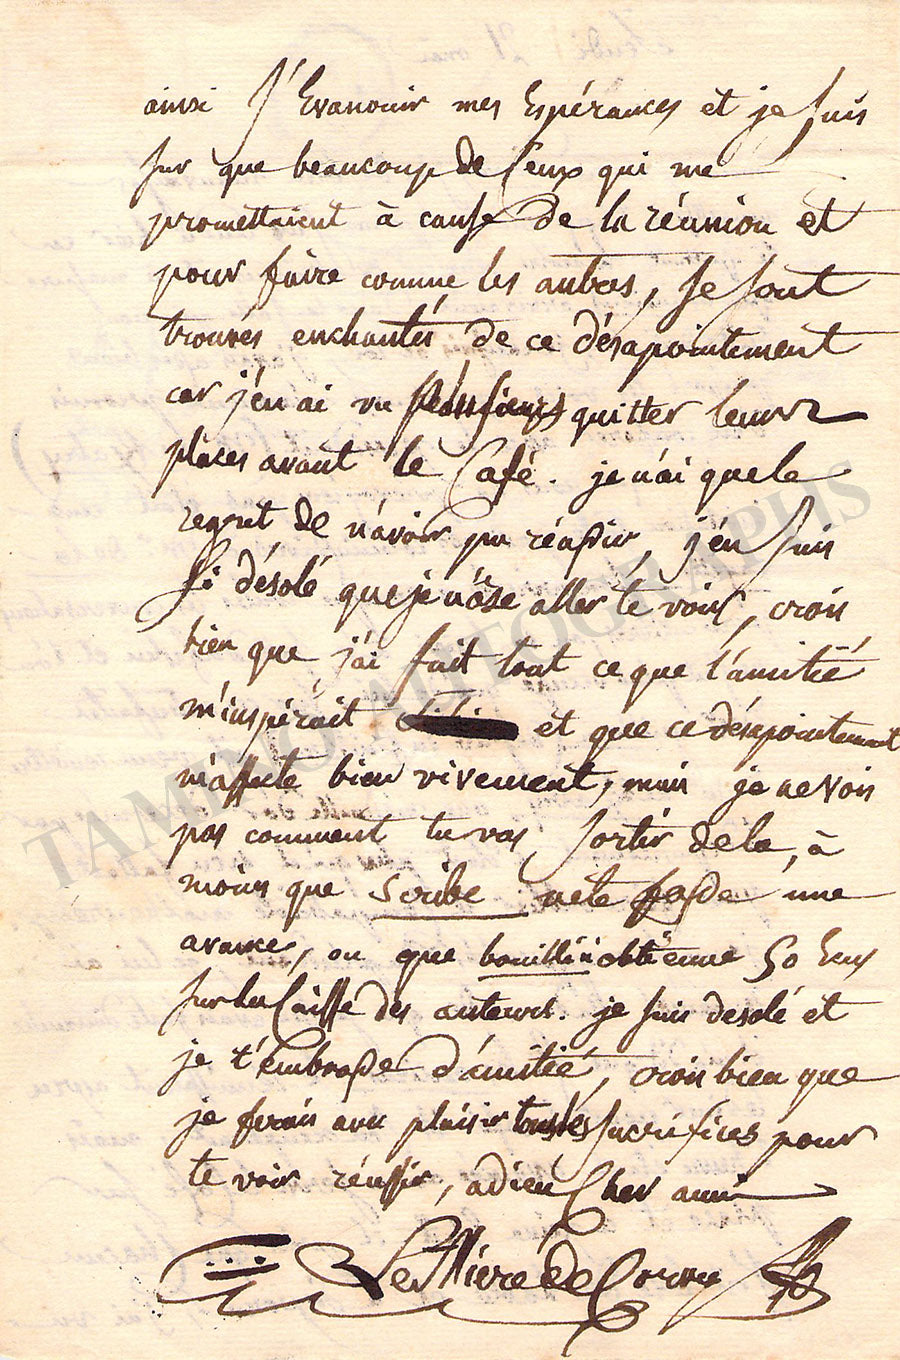 ainsi s'Evanouir mes Espérances et je suis
sur que beaucoup de Ceux qui me
promettaient à cause de la réunion et
pour faire comme les autres, se sont
trouvés enchantés de ce désapointement
car j'en ai vu plusieurs quitter leurs
places avant le Café. je n'ai que le
regret de n'avoir pu réussir, j'en suis
si désolé que je n'ose aller te voir, crois
bien que j'ai fait tout ce que l'amitié
m'inspirait et que ce désapointement
m'affecte bien vivement, mais je ne vois
pas comment tu vas sortir de la, à
moins que Scribe ne te fasse une
avance, ou que bouilli n'obtienne 50 Eus
sur la Caisse des auteurs. je suis desolé et
je t'embrasse d'amitié, crois bien que
je ferais avec plaisir tous les sacrifices pour
te voir réussir, adieu Cher ami
TAMINO AUTOGRAPHS